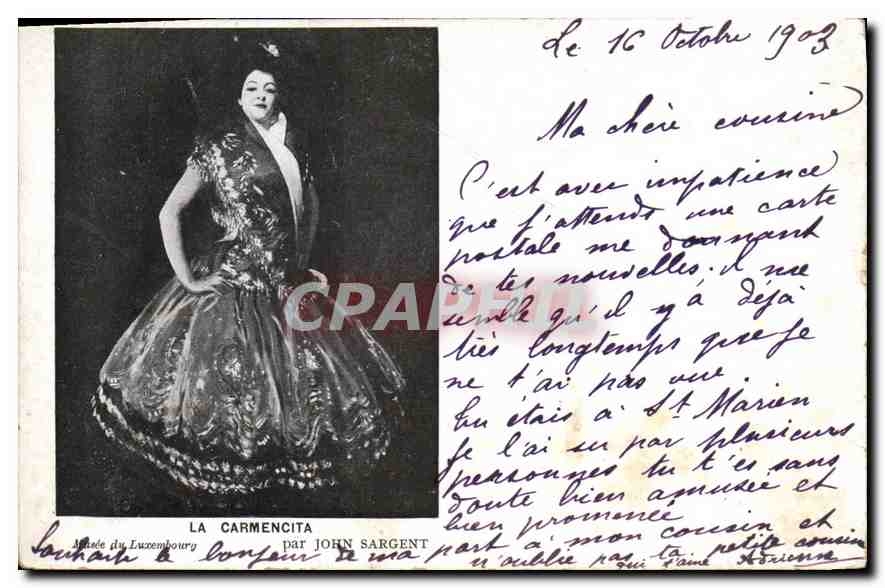 Le 16 Octobre 1903
Ma chère cousine
C'est avec impatience
que j'attends une carte
postale me donnant
de tes nouvelles. il me
semble qu'il y à déjà
très longtemps que je
ne t'ai pas vue.
Tu étais à St Marien
je l'ai su par plusieurs
personnes tu t'es sans
doute bien amusée et
bien promenée
Souhaite le bonjour de ma part à mon cousin et
n'oublie pas ta petite cousine
qui t'aime Adrienne
LA CARMENCITA
Musée du Luxembourg par JOHN SARGENT